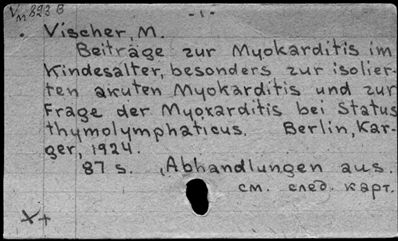 V m 893 B
- 1 -
Vischer, M.
Beiträge zur Myokarditis im
Kindesalter, besonders zur isolier-
ten akuten Myokarditis und zur
Frage der Myokarditis bei Status
thymolymphaticus. Berlin, Kar-
ger, 1924.
87 s. (Abhandlungen aus.
см. след. карт.